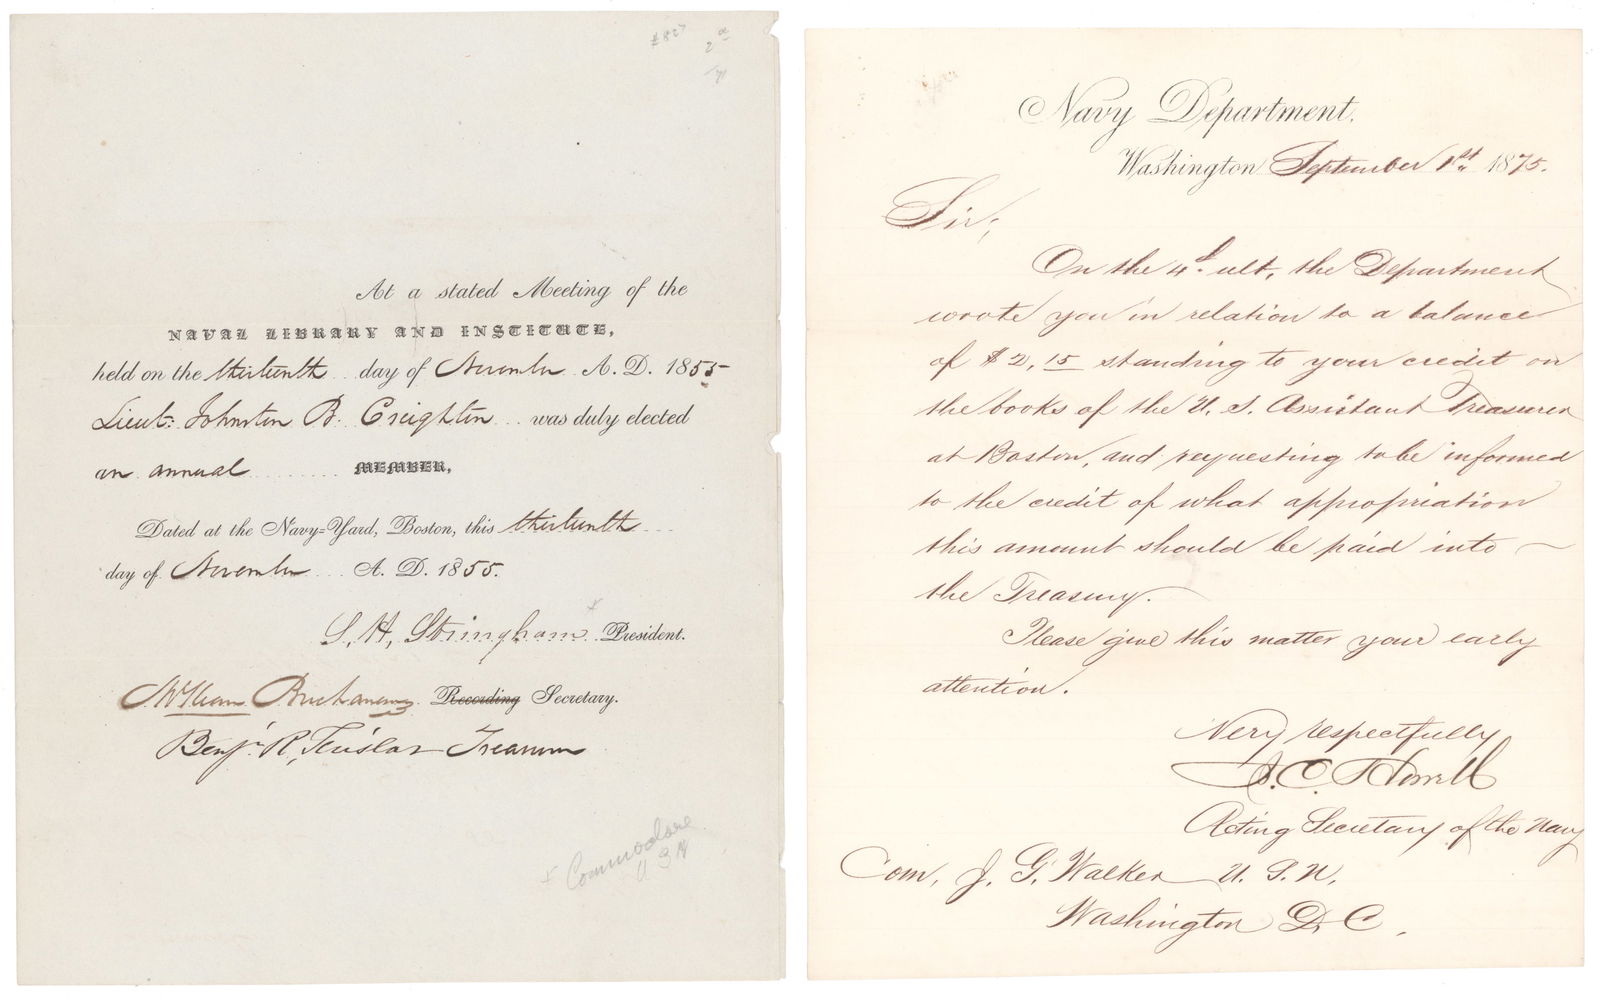 #827
At a stated Meeting of the
NAVAL LIBRARY AND INSTITUTE,
held on the thirteenth day of November A. D. 1855
Lieut: Johnston B. Creighton was duly elected
an annual MEMBER,
Dated at the Navy=Yard, Boston, this thirteenth
day of November A. D. 1855.
S. H. Stringham x President.
William Buchanan Recording Secretary.
Benj: R, Treasurer
x Commodore
USN
Navy Department.
Washington September 1st 1875.
Sir;
On the 4th ult, the Department
wrote you in relation to a balance
of $2,15 standing to your credit on
the books of the U. S. Assistant Treasurer
at Boston, and requesting to be informed
to the credit of what appropriation
this amount should be paid into
the Treasury.
Please give this matter your early
attention.
Very respectfully
Howell
Acting Secretary of the Navy
Com, J. G. Walker U. S. N,
Washington D. C.